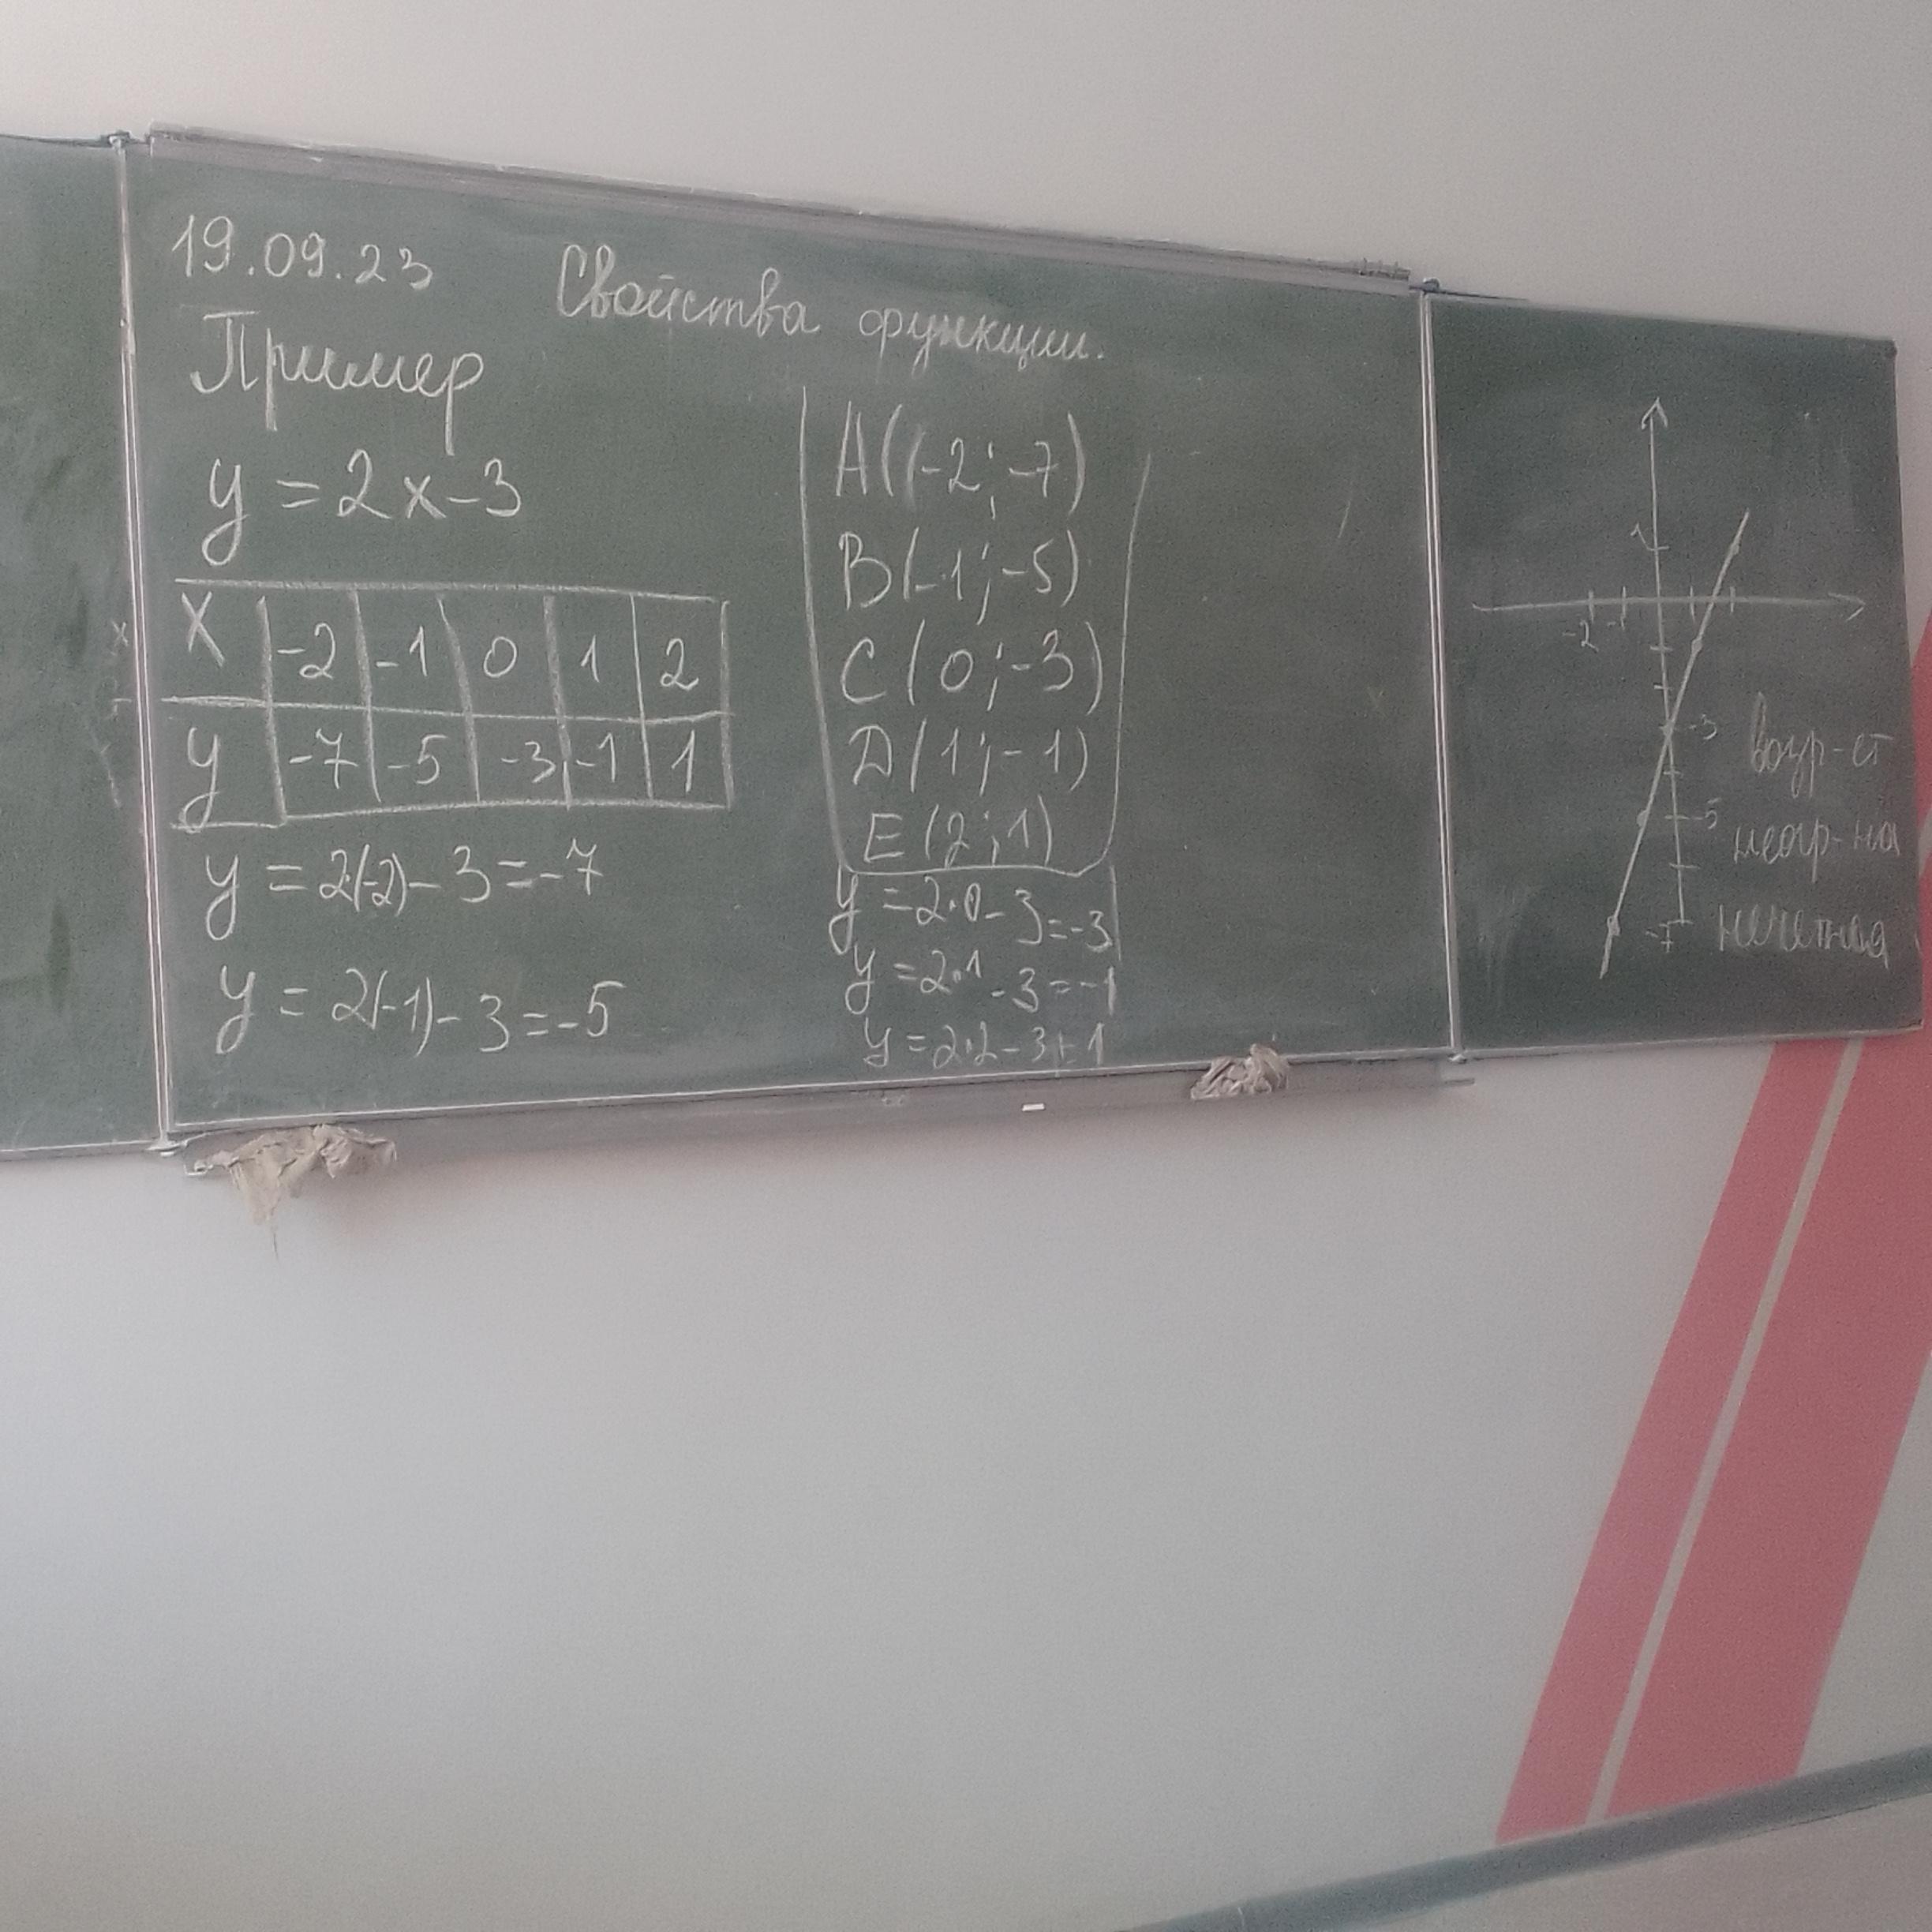 19.09.23
Свойства функции.
Пример
y = 2x - 3
x -2 -1 0 1 2
y -7 -5 -3 -1 1
y = 2·(-2) - 3 = -7
y = 2(-1) - 3 = -5
A(-2; -7)
B(-1; -5)
C(0; -3)
D(1; -1)
E(2; 1)
y = 2·0 - 3 = -3
y = 2·1 - 3 = -1
y = 2·2 - 3 = 1
1
-2 -1
-3
возр-ст
-5
неогр-на
-7
нечетная